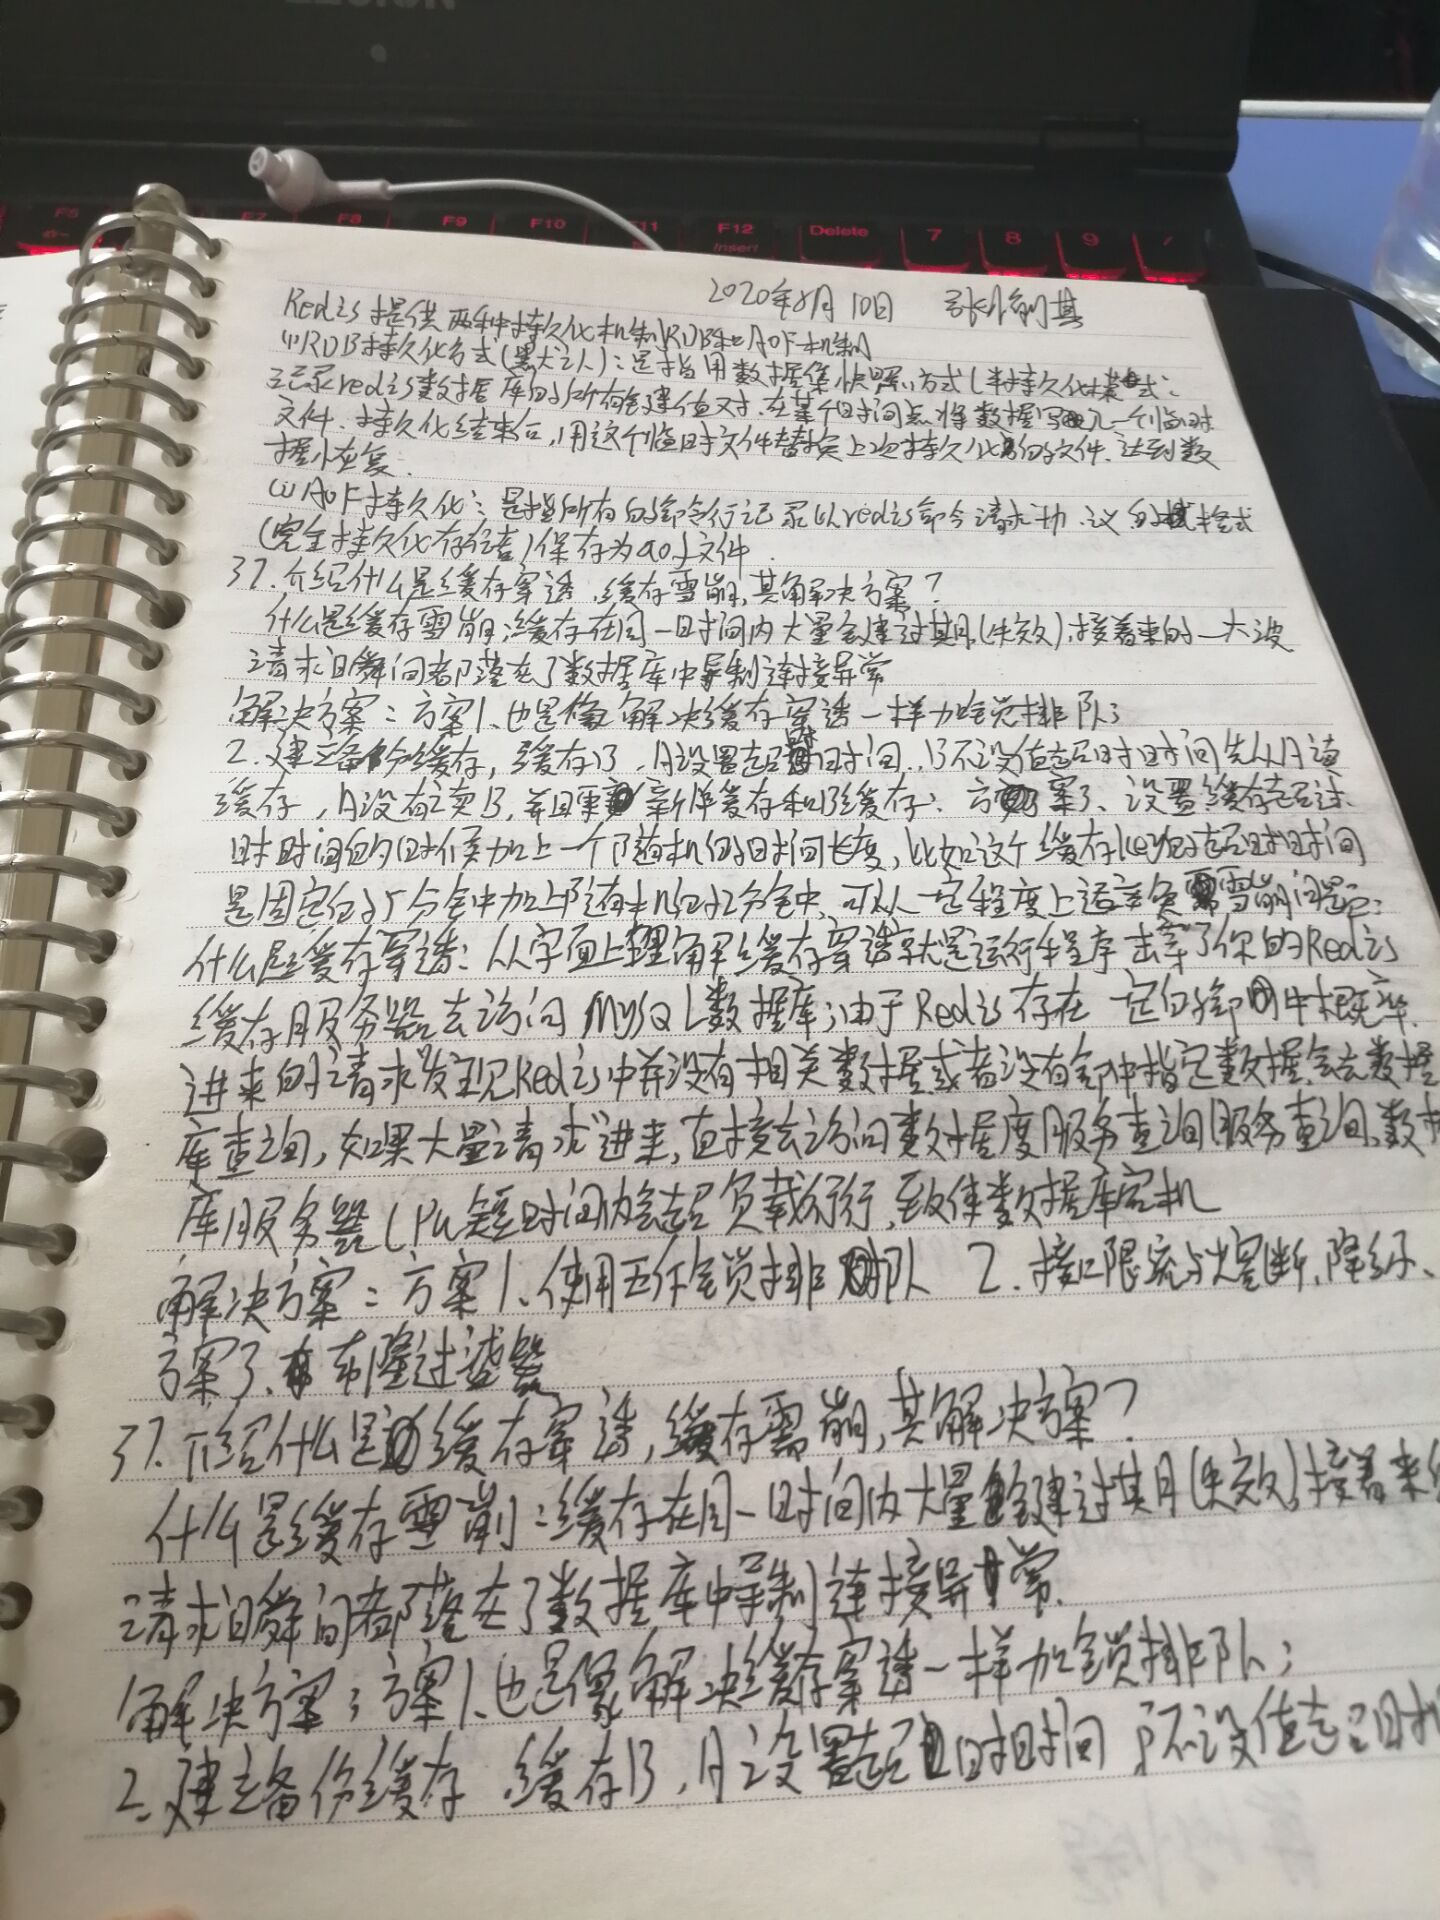 F7 F8 F9 F10 F11 F12 Insert Delete 7 8 9
2020年8月10日
Redis提供两种持久化机制RDB和AOF机制
(1)RDB持久化方式(默认):是指用数据集快照方式(半持久化模式:
记录redis数据库的所有键值对.在某个时间点将数据写入一个临时
文件.持久化结束后,用这个临时文件替换上次持久化的文件.达到数
据恢复.
AOF持久化:是指所有的命令行记录以redis命令请求协议的格式
(完全持久化存储)保存为aof文件.
37.介绍什么是缓存穿透,缓存雪崩,其解决方案?
什么是缓存雪崩:缓存在同一时间内大量键过期(失效),接着来的一大波
请求瞬间都落在了数据库中导制连接异常
解决方案:方案1、也是像解决缓存穿透一样加锁排队;
2.建立备份缓存,缓存B,A设置超时时间,B不设值超时时间先从A读
缓存,A没有读B,并且更新A缓存和B缓存:方案3、设置缓存超过
时时间的时候加上一个随机的时间长度,比如这个缓存key的超时时间
是固定的5分钟加上随机的2分钟,可从一定程度上避免雪崩问题:
什么是缓存穿透:从字面上理解缓存穿透就是运行程序击穿了你的Redis
缓存服务器去访问MySQL数据库;由于Redis存在一定的命中概率.
进来的请求发现Redis中并没有相关数据或者没有命中指定数据,会去数据
库查询,如果大量请求进来,直接去访问数据库服务查询服务查询,数据
库服务器CPU短时间内会超负载行行,致使数据库宕机
解决方案:方案1、使用互斥锁排队 2.接口限流与熔断、降级、
方案3、布隆过滤器
37.介绍什么是缓存穿透,缓存雪崩,其解决方案?
什么是缓存雪崩:缓存在同一时间内大量键过期(失效),接着来的
请求瞬间都落在了数据库中导制连接异常.
解决方案:方案1、也是像解决缓存穿透一样加锁排队;
2.建立备份缓存.缓存B,A设置超时时间,B不设值超时